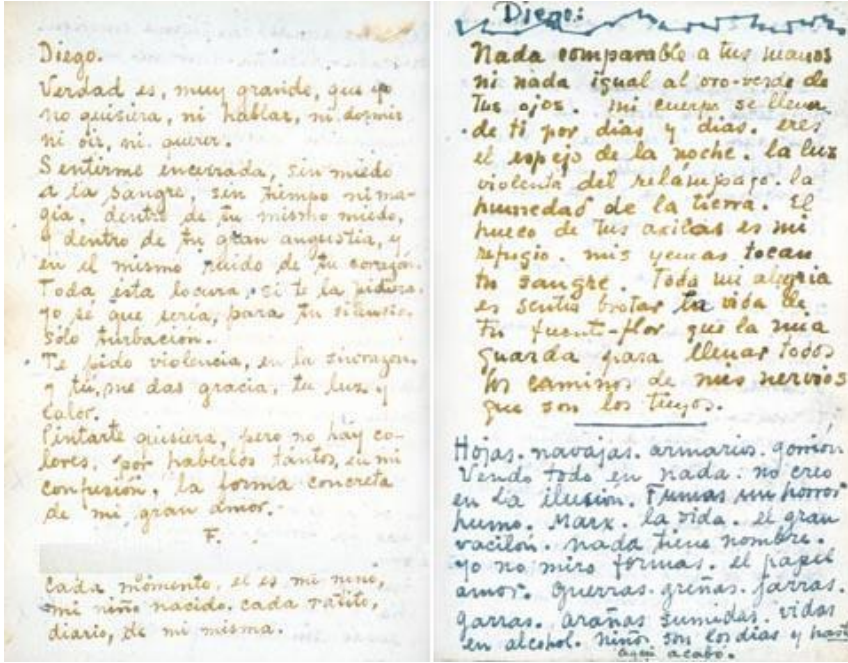 Diego.
Verdad es, muy grande, que yo
no quisiera, ni hablar, ni dormir
ni oír, ni querer.
Sentirme encerrada, sin miedo
a la sangre, sin tiempo ni ma-
gia, dentro de tu mismo miedo,
y dentro de tu gran angustia, y
en el mismo ruido de tu corazón.
Toda esta locura, si te la pidiera,
yo sé que sería, para tu silencio,
sólo turbación.
Te pido violencia, en la sinrazón,
y tú, me das gracia, tu luz y
calor.
Pintarte quisiera, pero no hay co-
lores, por haberlos tantos, en mi
confusión, la forma concreta
de mi gran amor.
F.
Cada momento, él es mi niño,
mi niño nacido, cada ratito,
diario, de mi misma.
Diego:
Nada comparable a tus manos
ni nada igual al oro-verde de
tus ojos. mi cuerpo se llena
de ti por días y días. eres
el espejo de la noche. la luz
violenta del relámpago. la
humedad de la tierra. El
hueco de tus axilas es mi
refugio. mis yemas tocan
tu sangre. Toda mi alegría
es sentir brotar la vida de
tu fuente-flor que la mia
guarda para llenar todos
los caminos de mis nervios
que son los tuyos.
Hojas. navajas. armario. gorrión
Vendo todo en nada. no creo
en la ilusión. Fumas un horror
humo. Marx. la vida. el gran
vacilón. nada tiene nombre.
yo no miro formas. el papel
amor. guerras. greñas. jarras.
garras. arañas sumidas. vidas
en alcohol. niños son los días y hasta
aquí acabó.